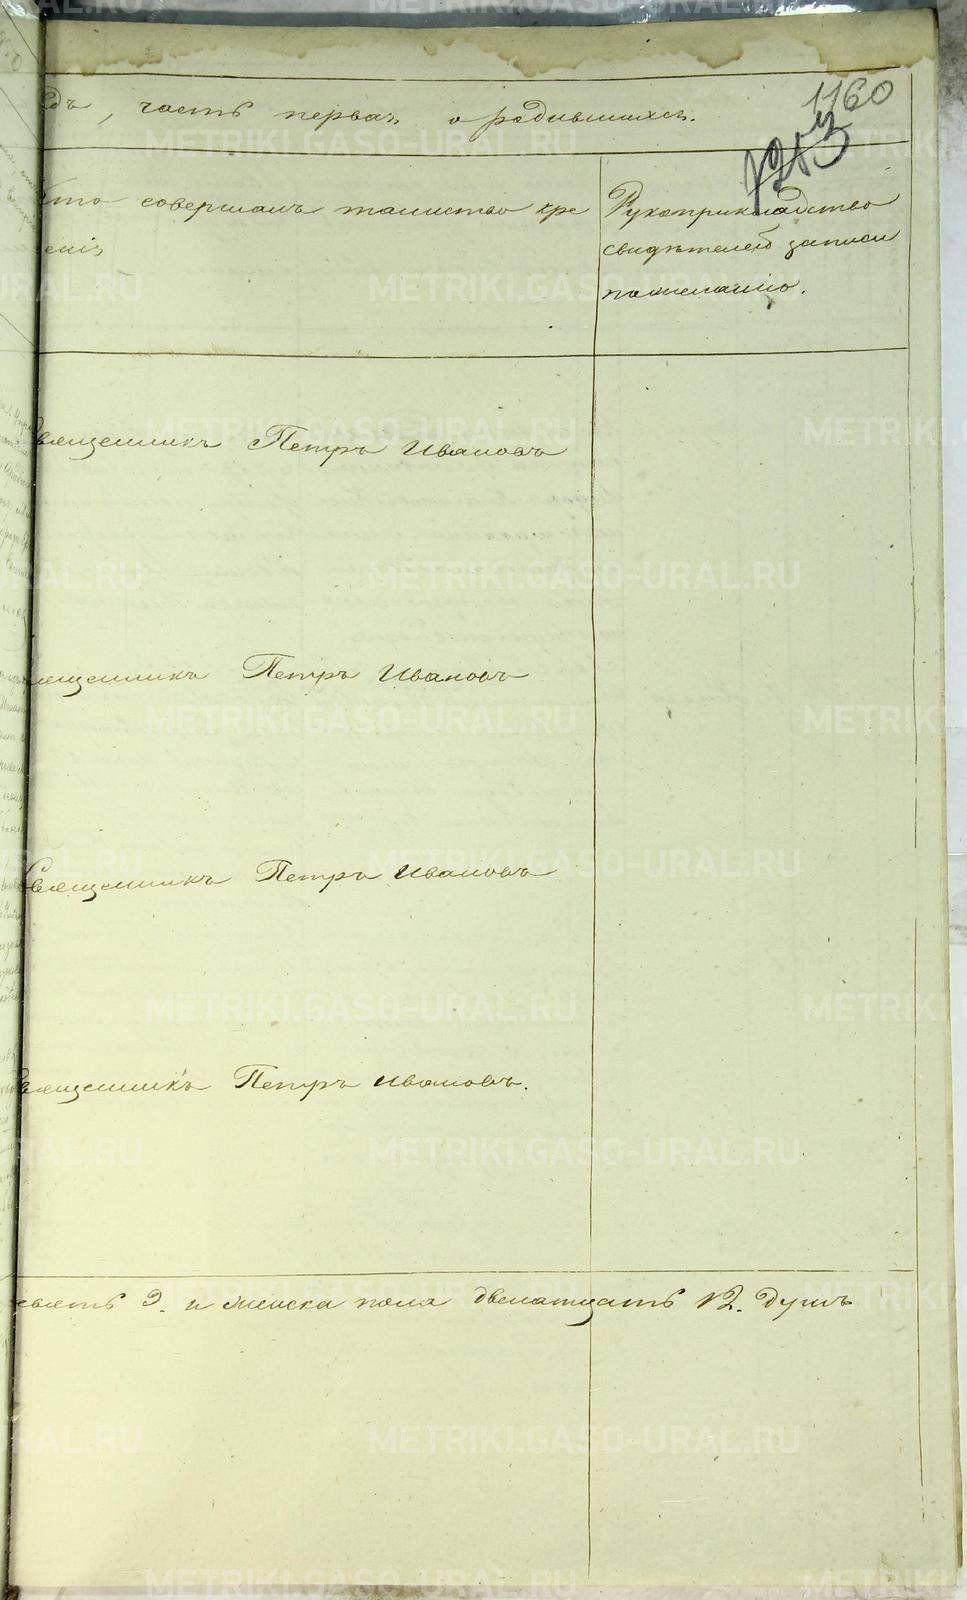 1160
1213
дъ, часть первая о родившихся.
Кто совершалъ таинство кре
щенія
Рукоприкладство
свидѣтелей записи
по желанію.
Священникъ Петръ Ивановъ
Священникъ Петръ Ивановъ
Священникъ Петръ Ивановъ
Священникъ Петръ Ивановъ.
девять 9. и женска пола двенатцать 12. душъ
METRIKI.GASO-URAL.RU